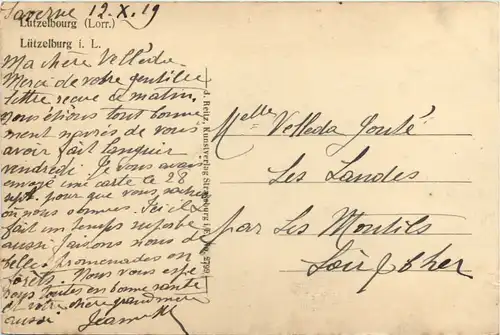 Saverne 12.X.19
Lützelbourg (Lorr.)
Lützelburg i. L.
Ma chère Velléda
Merci de votre gentille
lettre reçue ce matin.
nous étions tout bonne
ment navrés de vous
avoir fait languir
vendredi. Je vous avais
envoyé une carte le 28
sept. pour que vous sachiez
où nous sommes. Ici il
fait un temps superbe
aussi faisons nous de
belles promenades en
forêts. Nous vous espé
rons toutes en bonne santé
et votre chère grand'mère
aussi. Jeanne
J. Reitz, Kunstverlag Strasbourg i/E.
Melle Velléda Jouté
Les Landes
par Les Montils
Loir & Cher